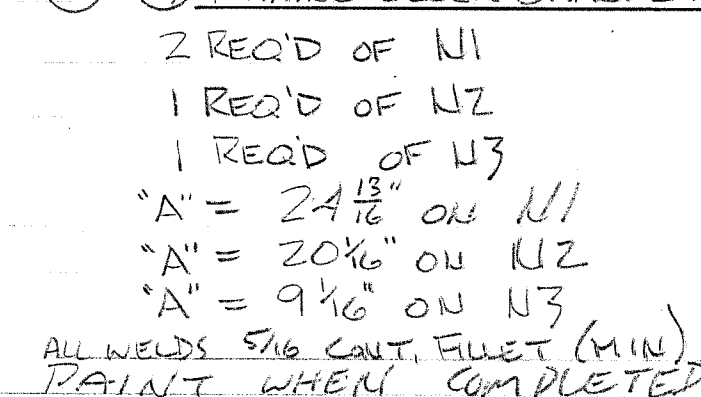 2 REQ'D OF N1
1 REQ'D OF N2
1 REQ'D OF N3
"A" = 24 13/16" ON N1
"A" = 20 1/16" ON N2
"A" = 9 1/16" ON N3
ALL WELDS 5/16 CONT. FILLET (MIN)
PAINT WHEN COMPLETED